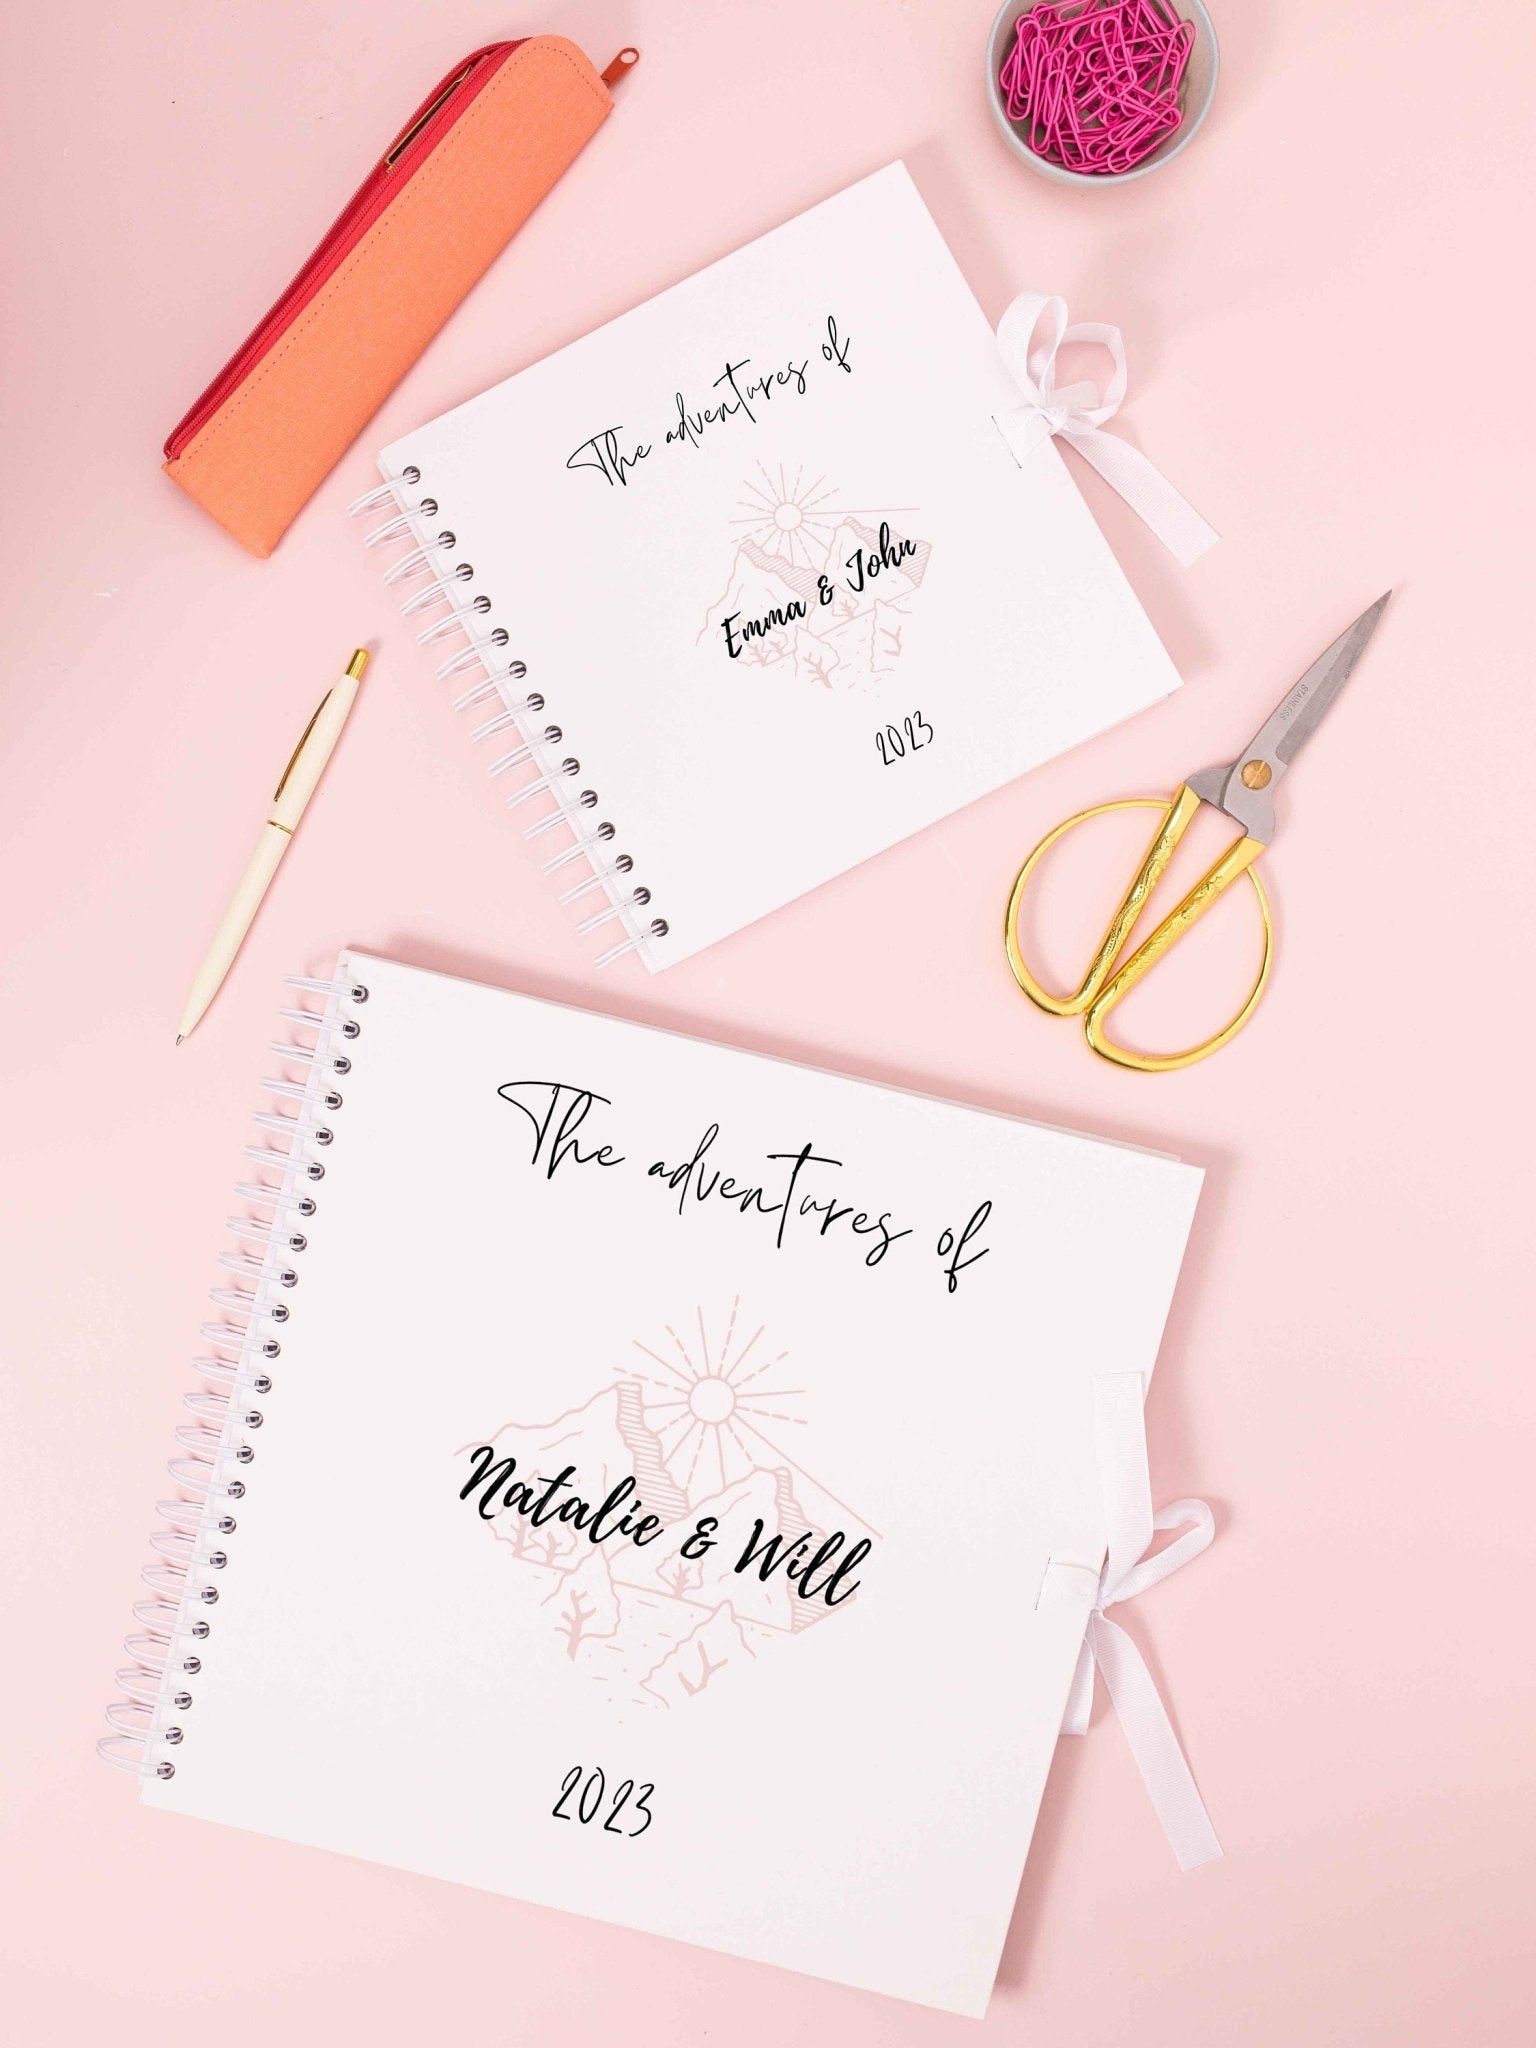 The adventures of
Emma & John
2023
STAINLESS
The adventures of
Natalie & Will
2023